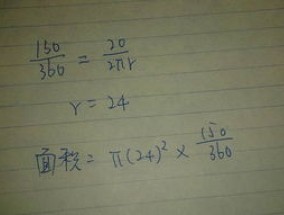 150/360 = 20/2πr
r = 24
面积 = π(24)² × 150/360